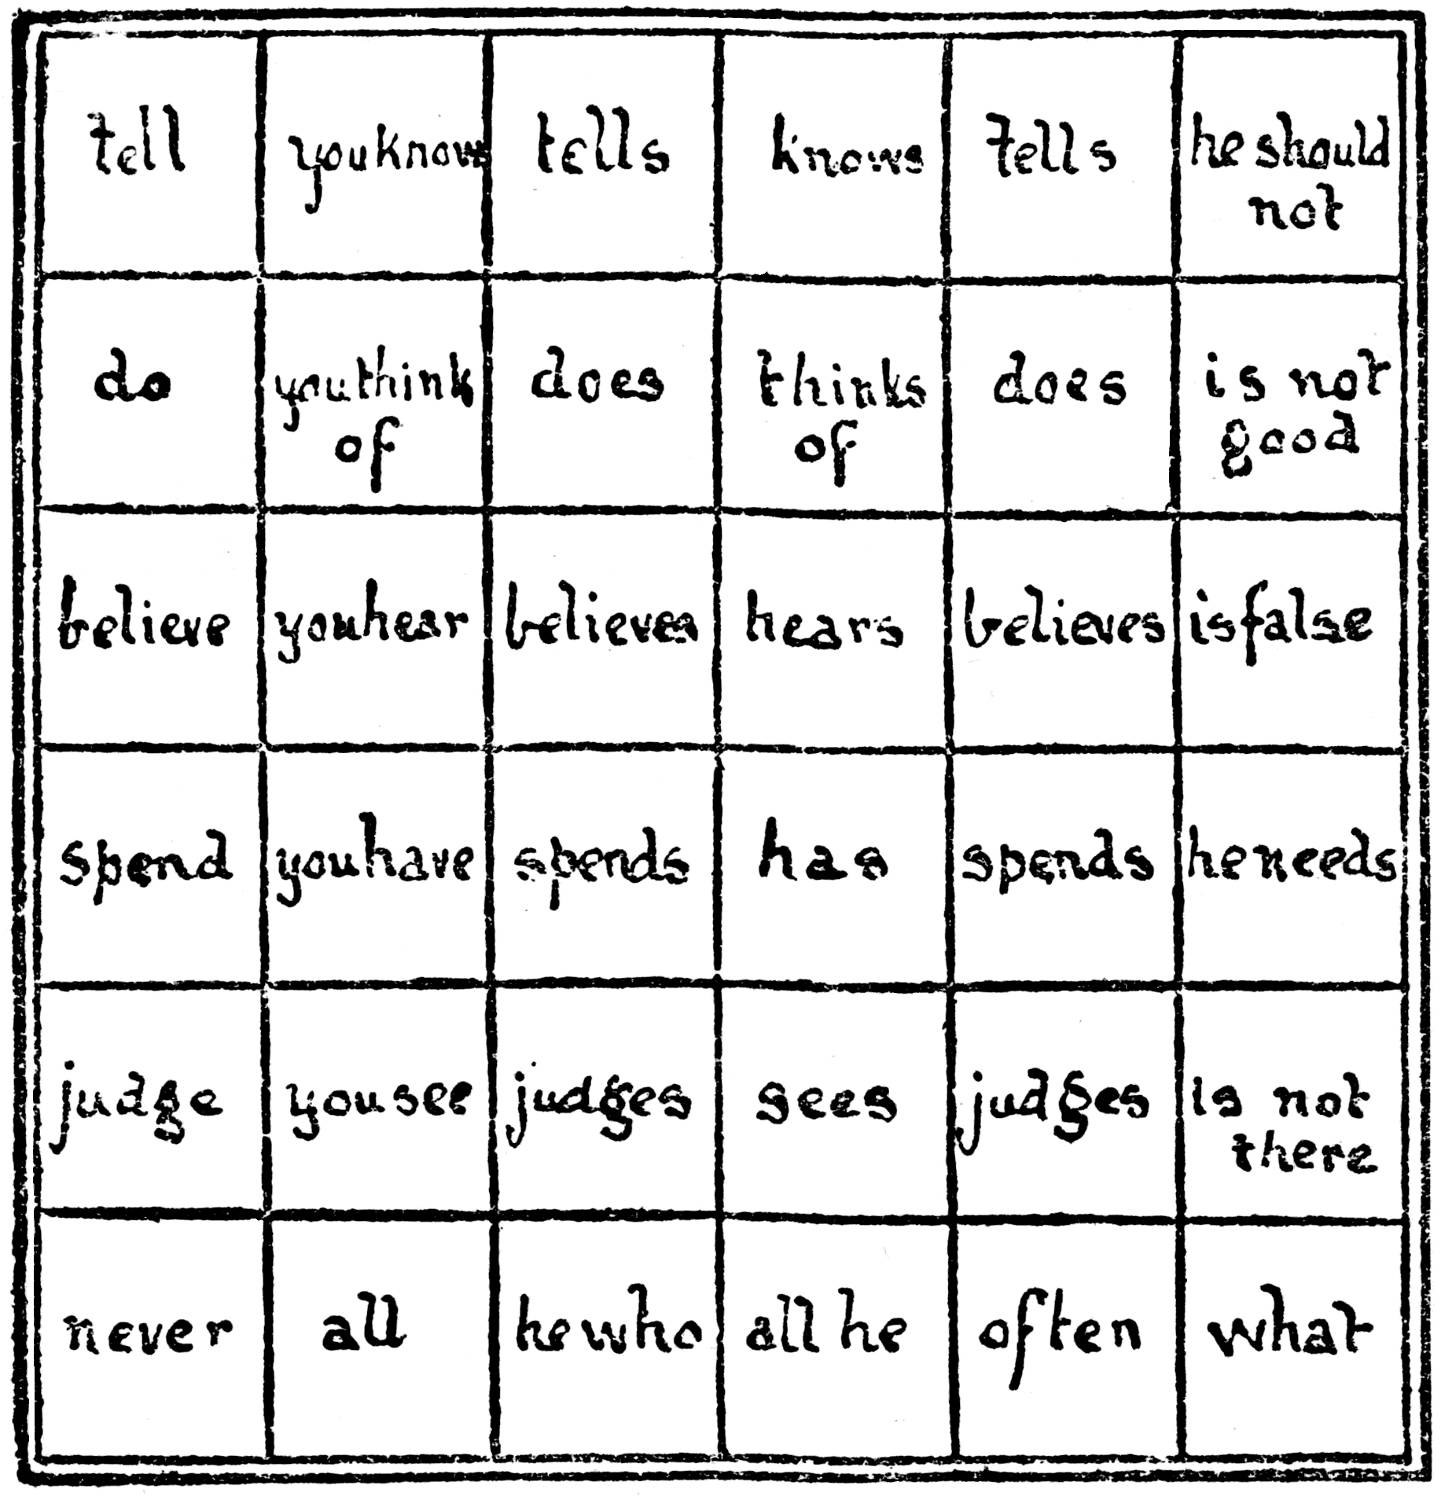 tell you know tells knows tells he should
not
do you think does thinks does is not
of of good
believe you hear believes hears believes is false
spend you have spends has spends he needs
judge you see judges sees judges is not
there
never all he who all he often what